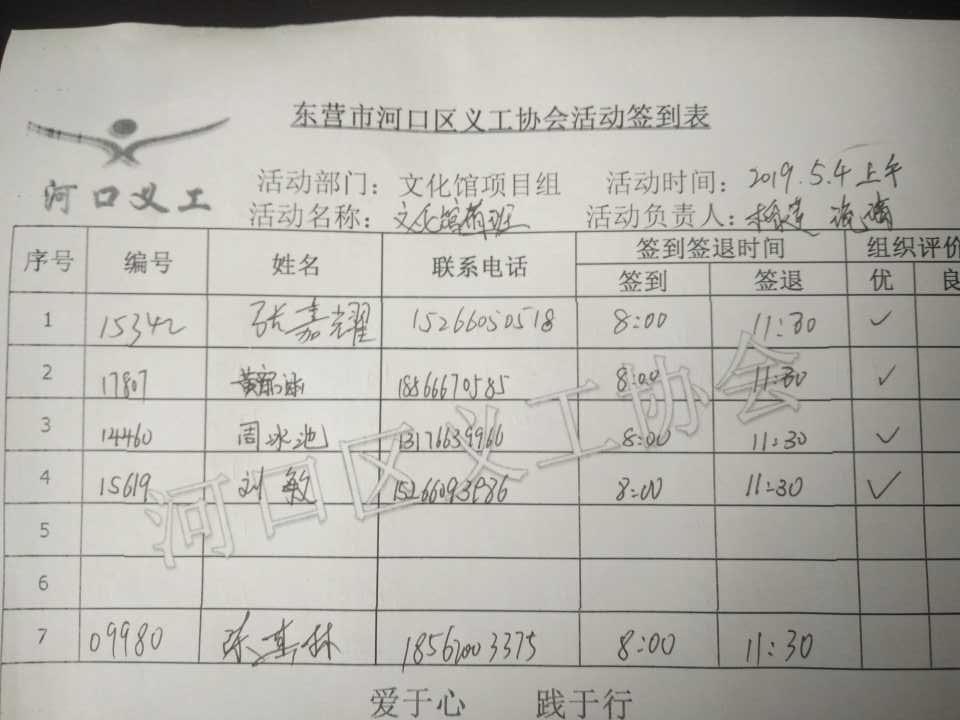 东营市河口区义工协会活动签到表
河口义工
活动部门：文化馆项目组 活动时间：2019.5.4上午
活动名称：文化馆 班 活动负责人：
序号 编号 姓名 联系电话 签到签退时间 组织评价
签到 签退 优 良
1 15342 张嘉耀 15266050518 8:00 11:30 ✓
2 17807 18866670585 8:00 11:30 ✓
3 14460 周冰池 13176639966 8:00 11:30 ✓
4 15619 刘敏 15266093986 8:00 11:30 ✓
5
6
7 09980 18562003375 8:00 11:30
爱于心 践于行
河口区义工协会